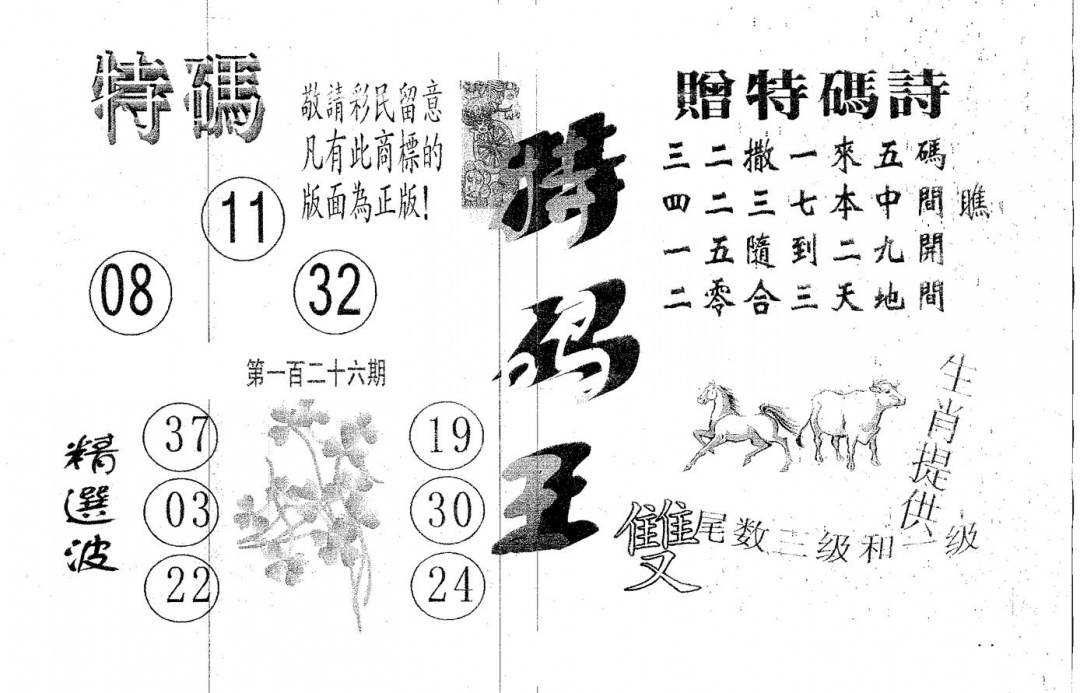 特碼
敬請彩民留意
凡有此商標的
版面為正版!
11
08
32
第一百二十六期
精選波
37
03
22
19
30
24
特码王
贈特碼詩
三二撒一來五碼
四二三七本中間瞧
一五隨到二九開
二零合三天地間
生肖提供
雙
尾数二级和一级